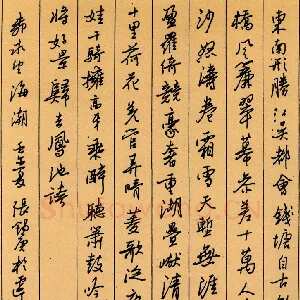 東南形勝江吳都會錢塘自古
橋風簾翠幕參差十萬人
沙怒濤卷霜雪天塹無涯
盈羅綺競豪奢重湖疊巘清
十里荷花羌管弄晴菱歌泛
娃千騎擁高牙乘醉聽簫鼓吟
將好景歸去鳳池誇
海潮 夏張錫庚於